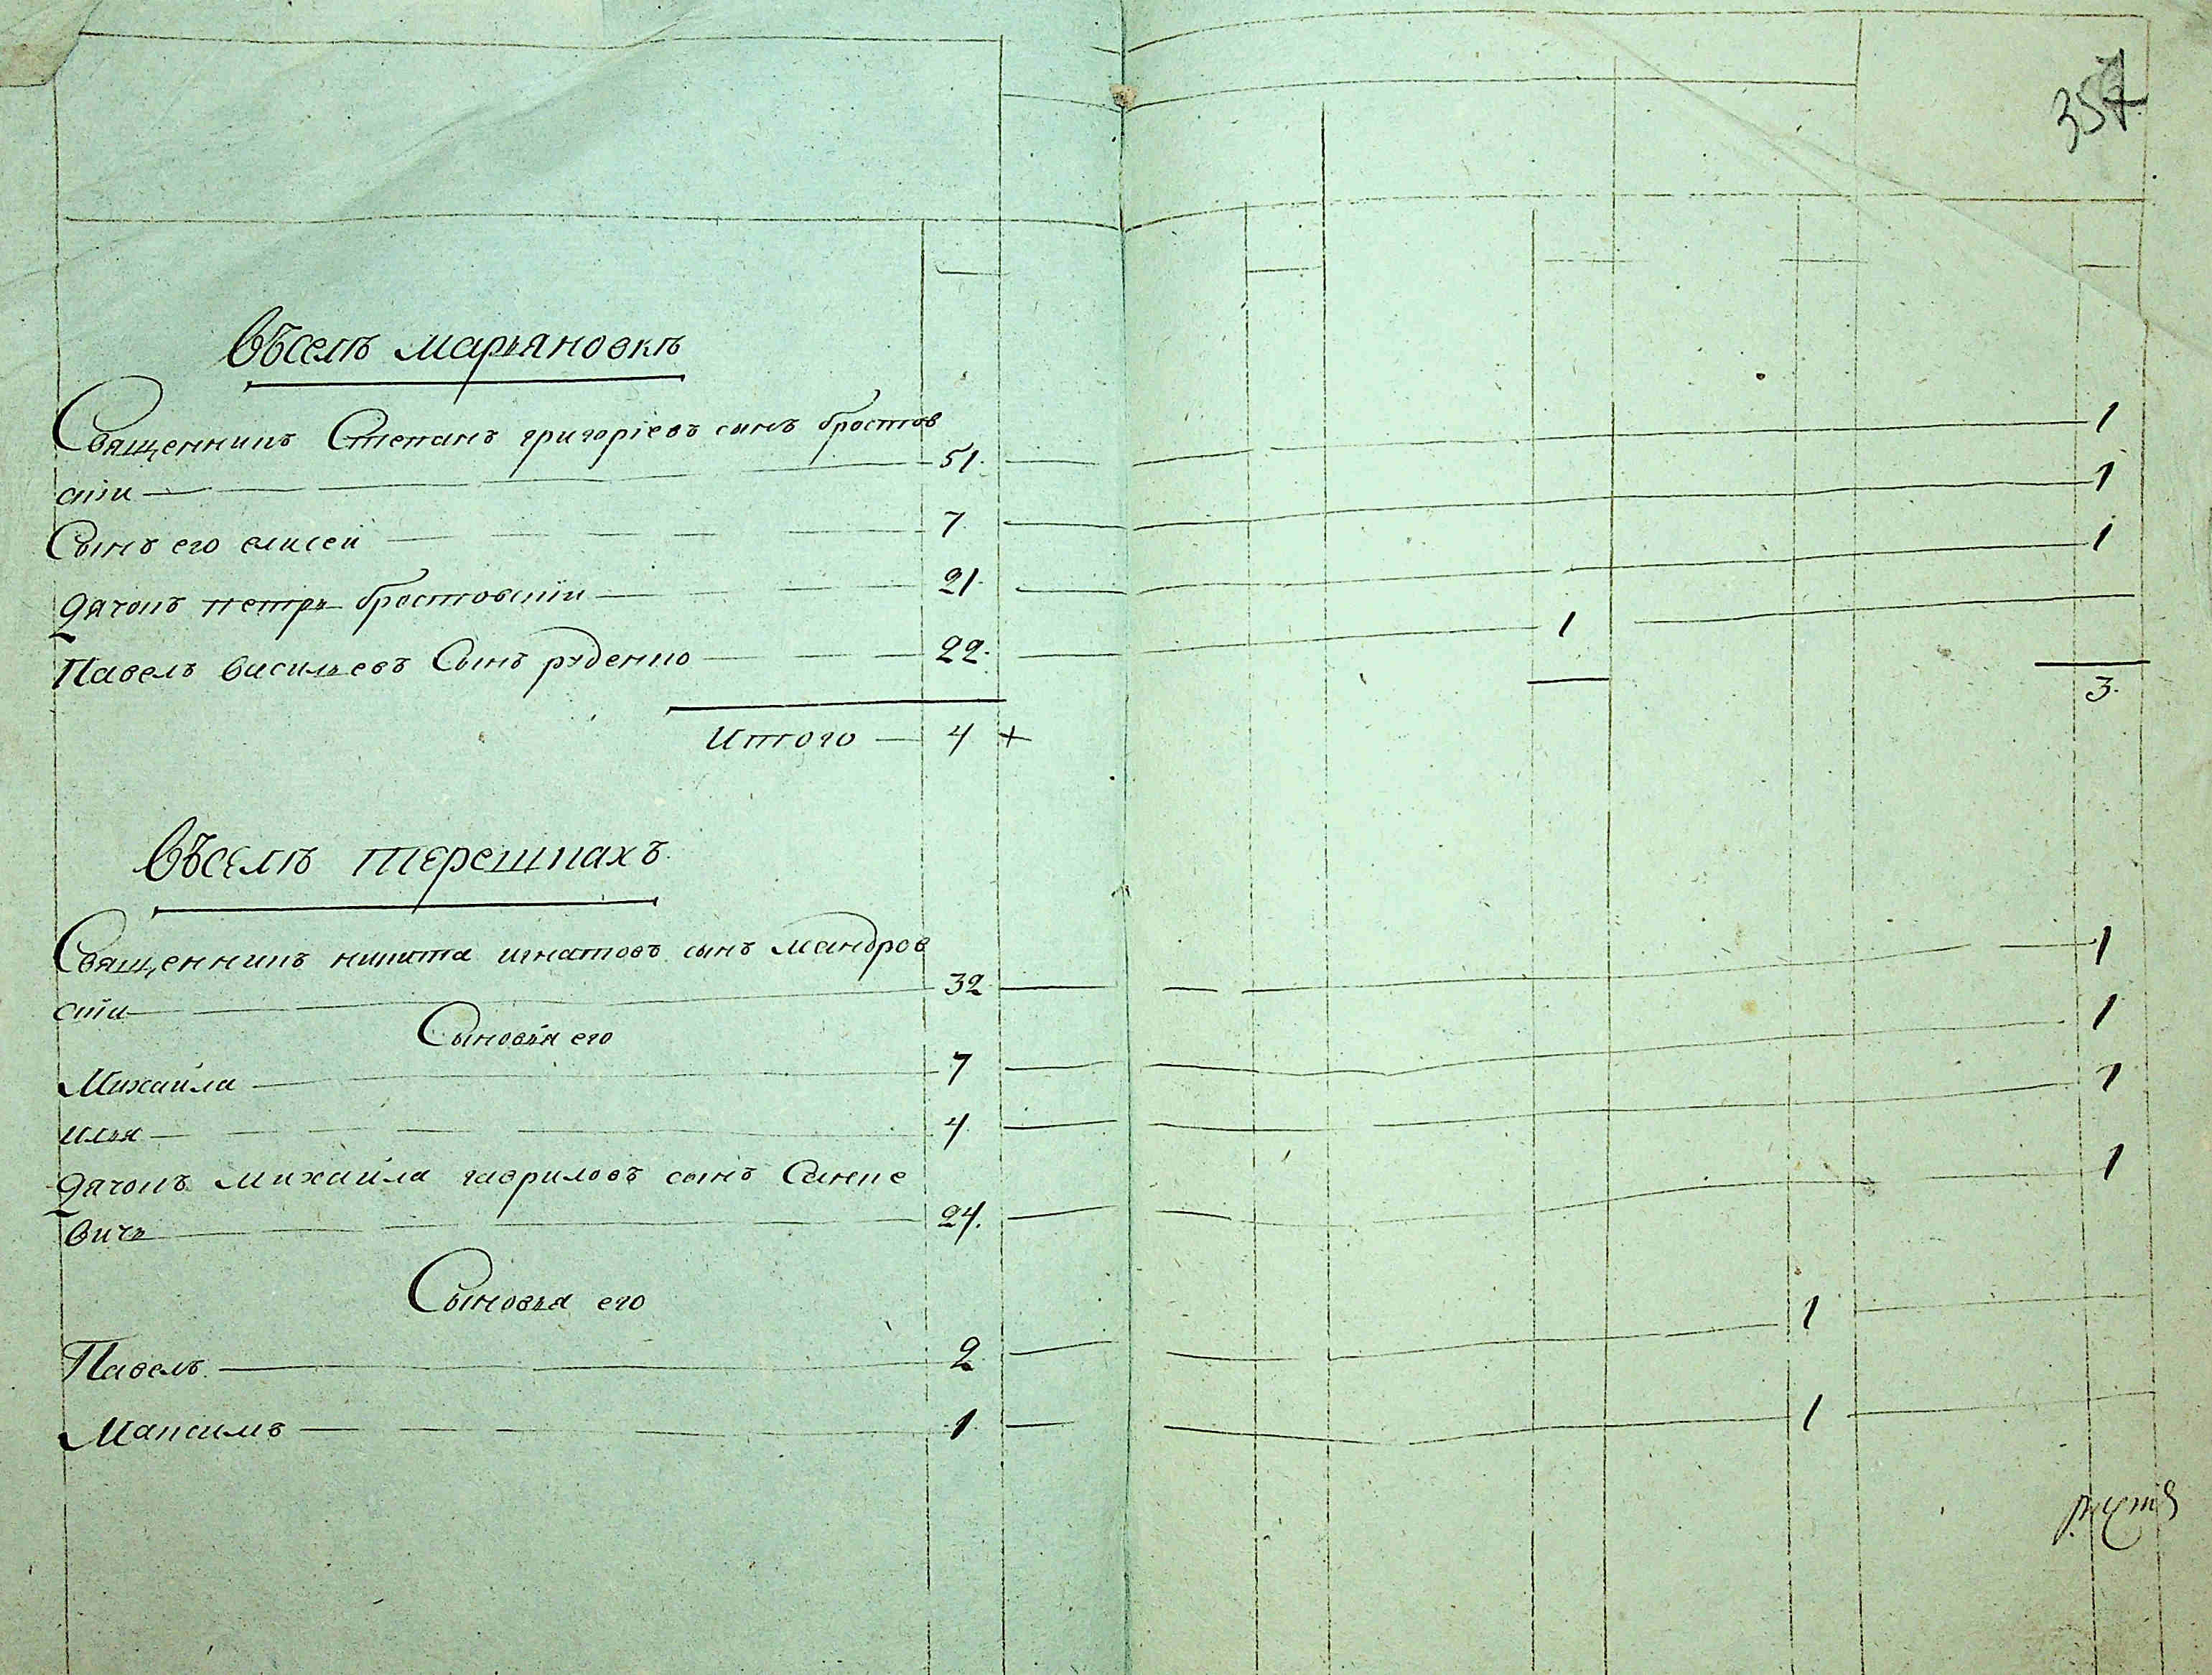 357
въселѣ марьяновкѣ
Священникъ Степанъ григоріевъ сынъ бростов
скіи 51. 1
Сынъ его елисеи 7 1
дячокъ петръ бростовскіи 21. 1
Павелъ васильевъ Сынъ руденко 22. 1
3.
Итого 4 +
въселѣ терешкахъ
Священникъ никита игнатовъ сынъ мандров
скіи 32 1
Сыновья его
Михаила 7 1
илья 4 1
дячокъ михаила гавриловъ сынъ Санке
вичь 24. 1
Сыновья его
Павелъ 2 1
Максимъ 1 1